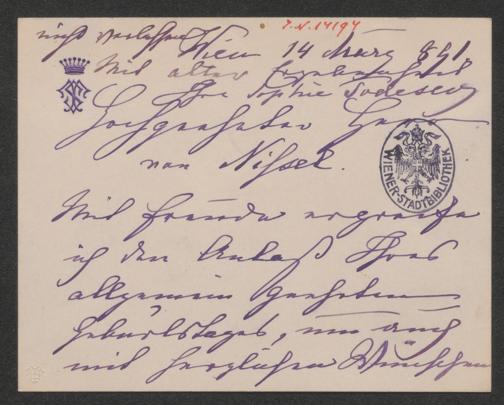 I.N. 14194
nicht verlassen
Wien 14 März 891
Mit alter Ergebenheit
Ihre Sophie Todesco
Hochgeehrter Herr
von Nissel.
WIENER-STADTBIBLIOTHEK
Mit Freude ergreife
ich den Anlaß Ihres
allgemein geehrten
Geburtstages, um auch
mit herzlichen Wünschen